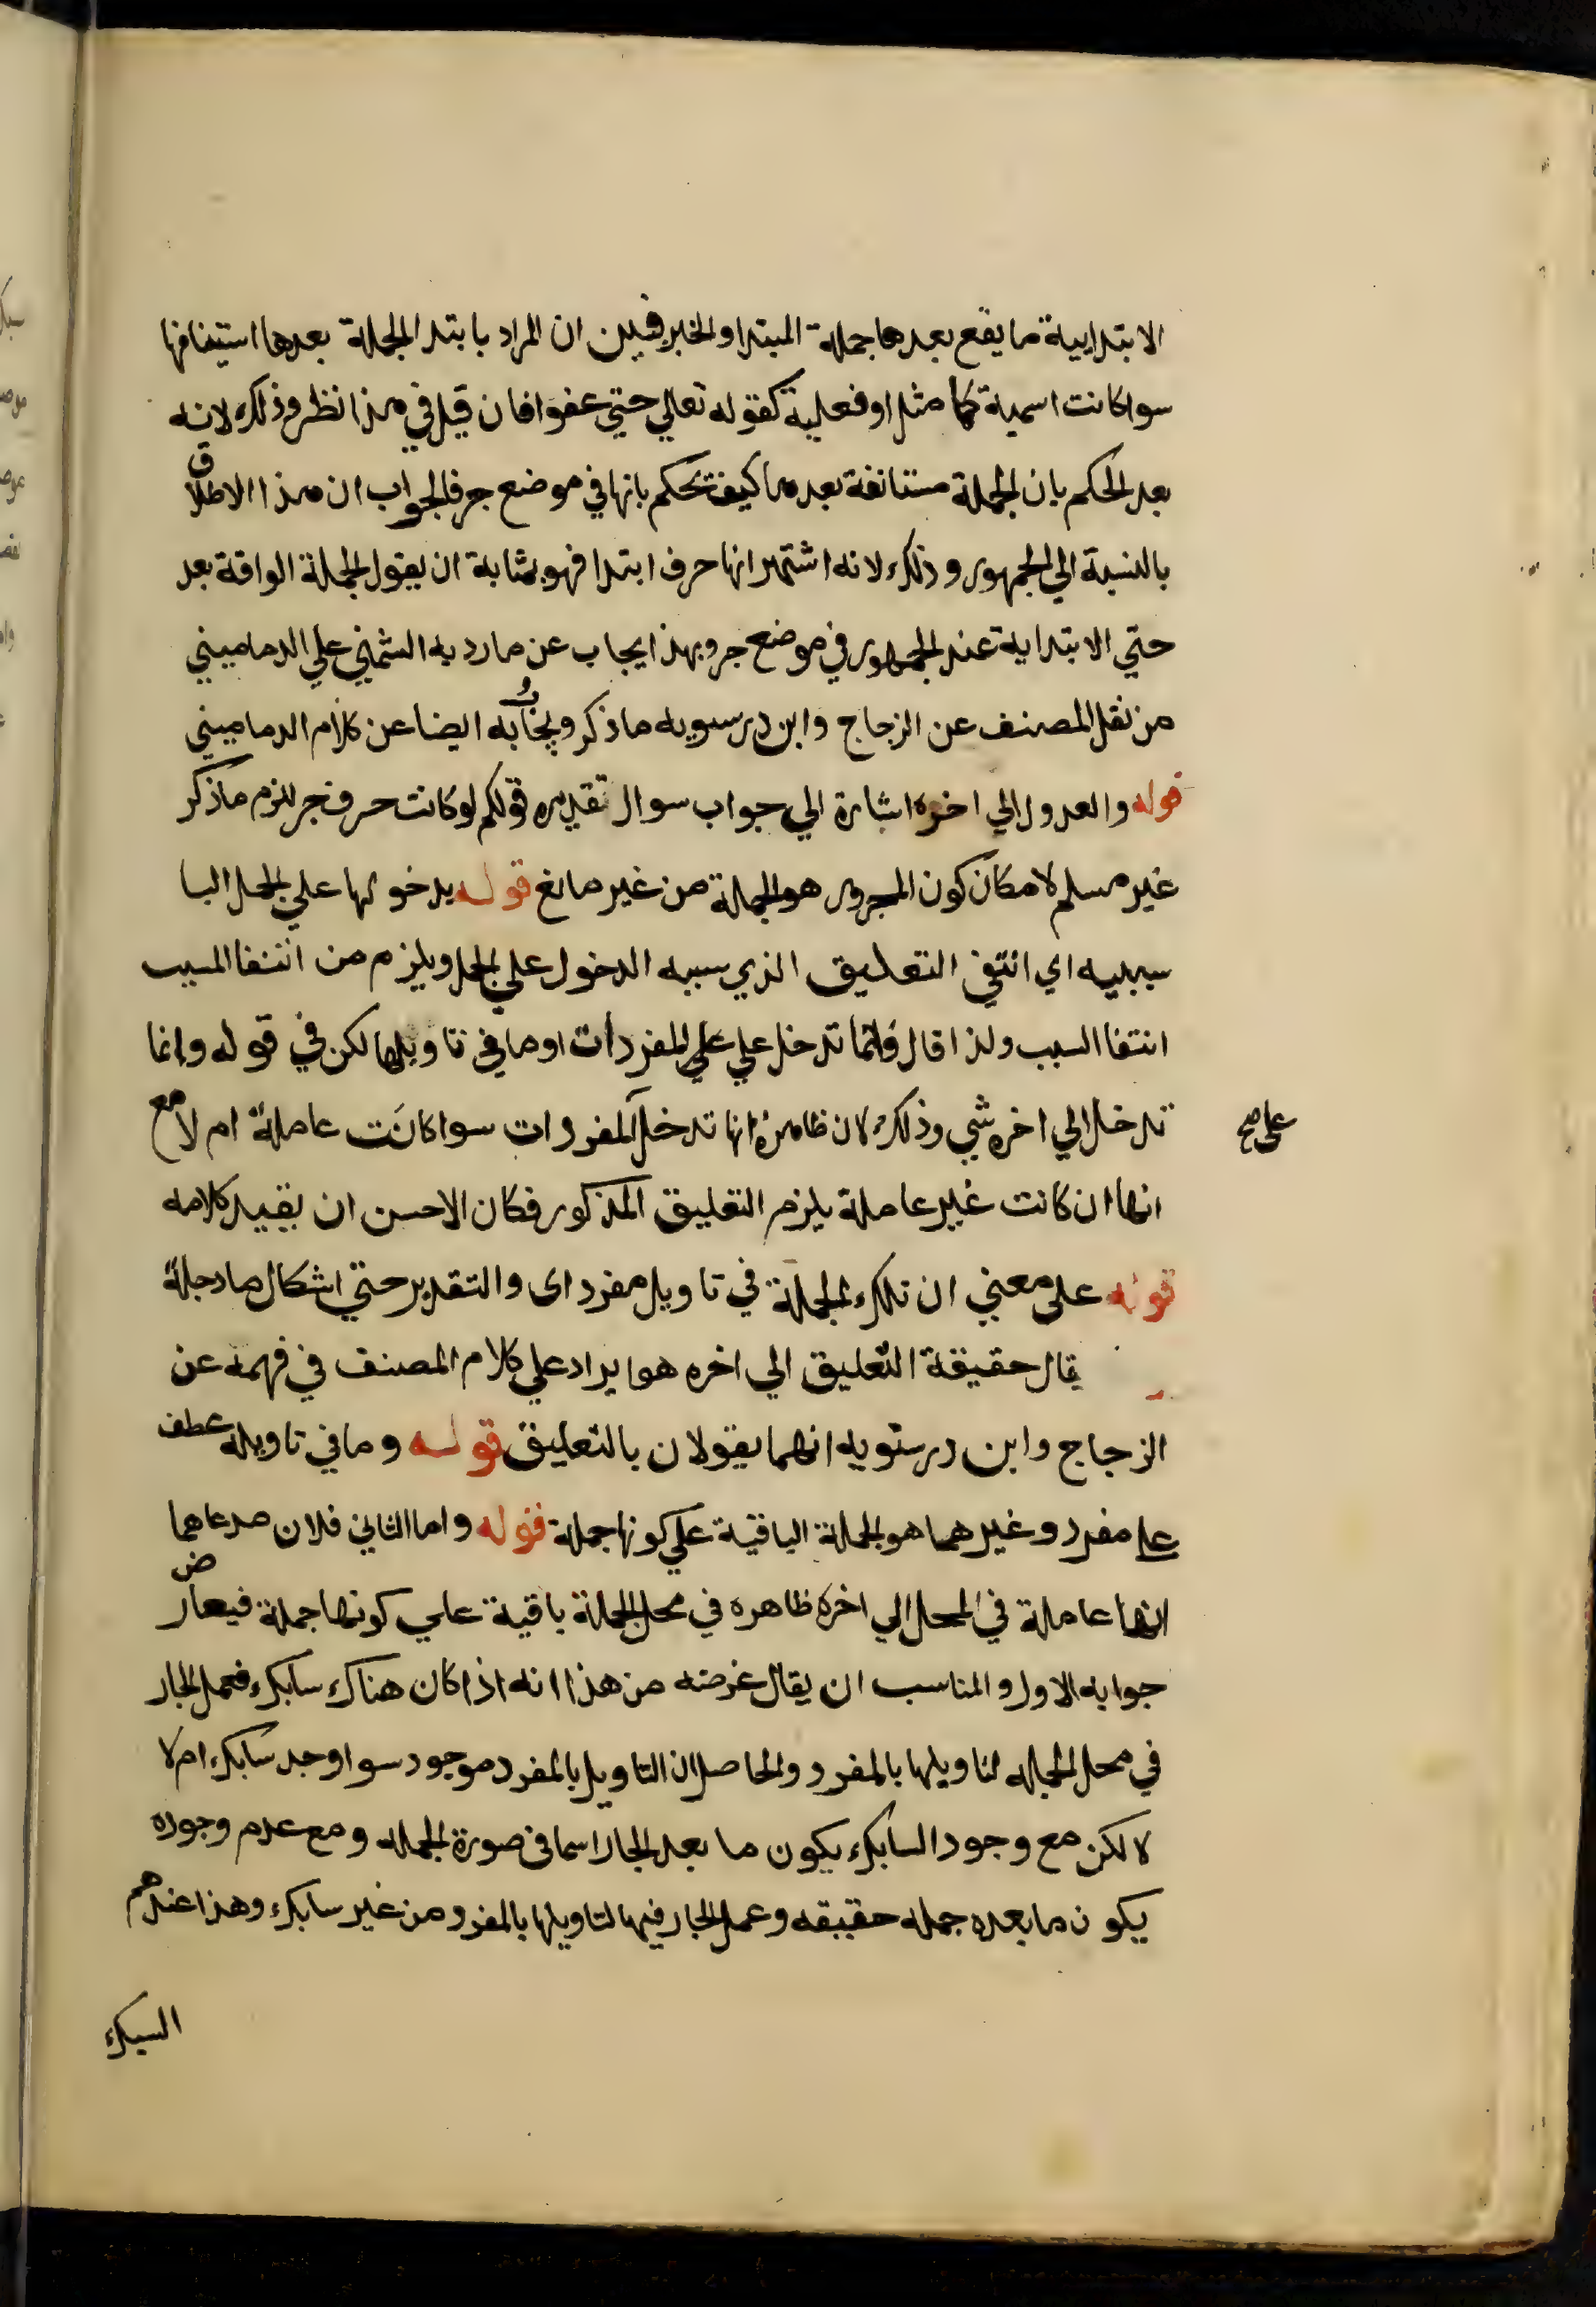 الابتدايية ما يقع بعدها جملة المبتدا والخبر فبين ان المراد بابتدا الجملة بعدها استينافها
سوا كانت اسمية كما مثل او فعلية كقوله تعالي حتي عفوا فان قيل في هذا نظر وذلك لانه
بعد الحكم بان الجملة مستانفة بعدها كيف تحكم بانها في موضع جر فالجواب ان هذا الاطلاق
بالنسبة الي الجمهور وذلك لانه اشتهر انها حرف ابتدا فهو بمثابة ان يقول الجملة الواقعة بعد
حتي الابتداية عند الجمهور في موضع جر وبهذا يجاب عن ما رد به الشمني علي الدماميني
من نقل المصنف عن الزجاج وابن درسويه ما ذكر ويجاب به ايضا عن كلام الدماميني
قوله والعدول الي اخره اشارة الي جواب سوال تقديره قولكم لو كانت حرف جر للزم ما ذكر
غير مسلم لامكان كون المجرور هو الجملة من غير مانع قوله بدخولها علي الجمل البا
سببيه اي انتفي التعليق الذي سببه الدخول علي الجمل ويلزم من انتفا المسبب
انتفا السبب ولذا قال وانما تدخل علي علي المفردات او ما في تاويلها لكن في قوله وانما
تدخل الي اخره شي وذلك لان ظاهره انها تدخل المفردات سوا كانت عاملة ام لا مع
على صح
انها ان كانت غير عاملة يلزم التعليق المذكور فكان الاحسن ان يقيد كلامه
قوله على معني ان تلك الجملة في تاويل مفرد اى والتقدير حتي اشكال ما دجلة
قال حقيقة التعليق الي اخره هو ايراد علي كلام المصنف في فهمه عن
الزجاج وابن درستويه انهما يقولان بالتعليق قوله وما في تاويله عطف
على مفرد وغيرهما هو الجملة الباقية علي كونها جملة قوله واما الثاني فلان مدعاهما
انها عاملة في المحل الي اخره ظاهره في محل الجملة باقية علي كونها جملة فيعارض
جوابه الاول والمناسب ان يقال غرضه من هذا انه اذا كان هناك سابك فعمل الجار
في محل الجمله لتاويلها بالمفرد والحاصل ان التاويل بالمفرد موجود سوا وجد سابك ام لا
لا لكن مع وجود السابك يكون ما بعد الجار اسما في صورة الجمله ومع عدم وجوده
يكون ما بعده جمله حقيقه وعمل الجار فيها لتاويلها بالمفرد من غير سابك وهذا عندهم
السبك